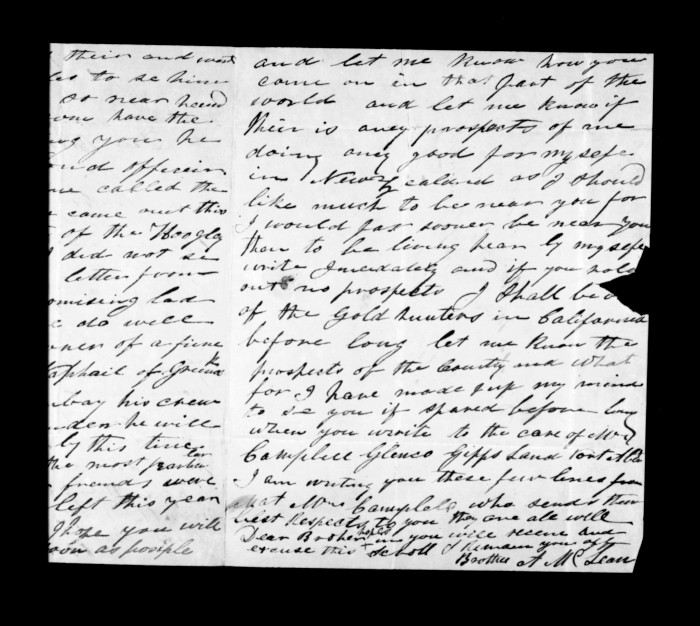 their and went
to se him
so near heird
you have the
you he
and officer
me called the
came out this
of the Hoogly
I did not se
letter from
promising lad
do will
of a fine
Raphail of Greenok
bay his crew
he will
by this time
the most
friends were
left this year
I hope you will
soon as posiple
and let me know how you
come on in that part of the
world and let me know if
their is aney prospects of me
doing any good for my sefe
in New Zealand as I Should
like much to be near you for
I would far sooner be near you
then to be living hear by my sefe
write Imedately and if you hold
out no prospects I Shall be
of the Gold hunters in California
before long let me know the
prospects of the Country and what
for I have made up my mind
to se you if spared before long
when you write to the care of Mr
Campbell Glenco Gipps Land
I am writing you these few lines from
that Mrs Campbels who sends thier
best Respects to you they are all will
Dear Brother hoping you will receve and
excuse this Scroll I Remain your aft
Brother A McLean